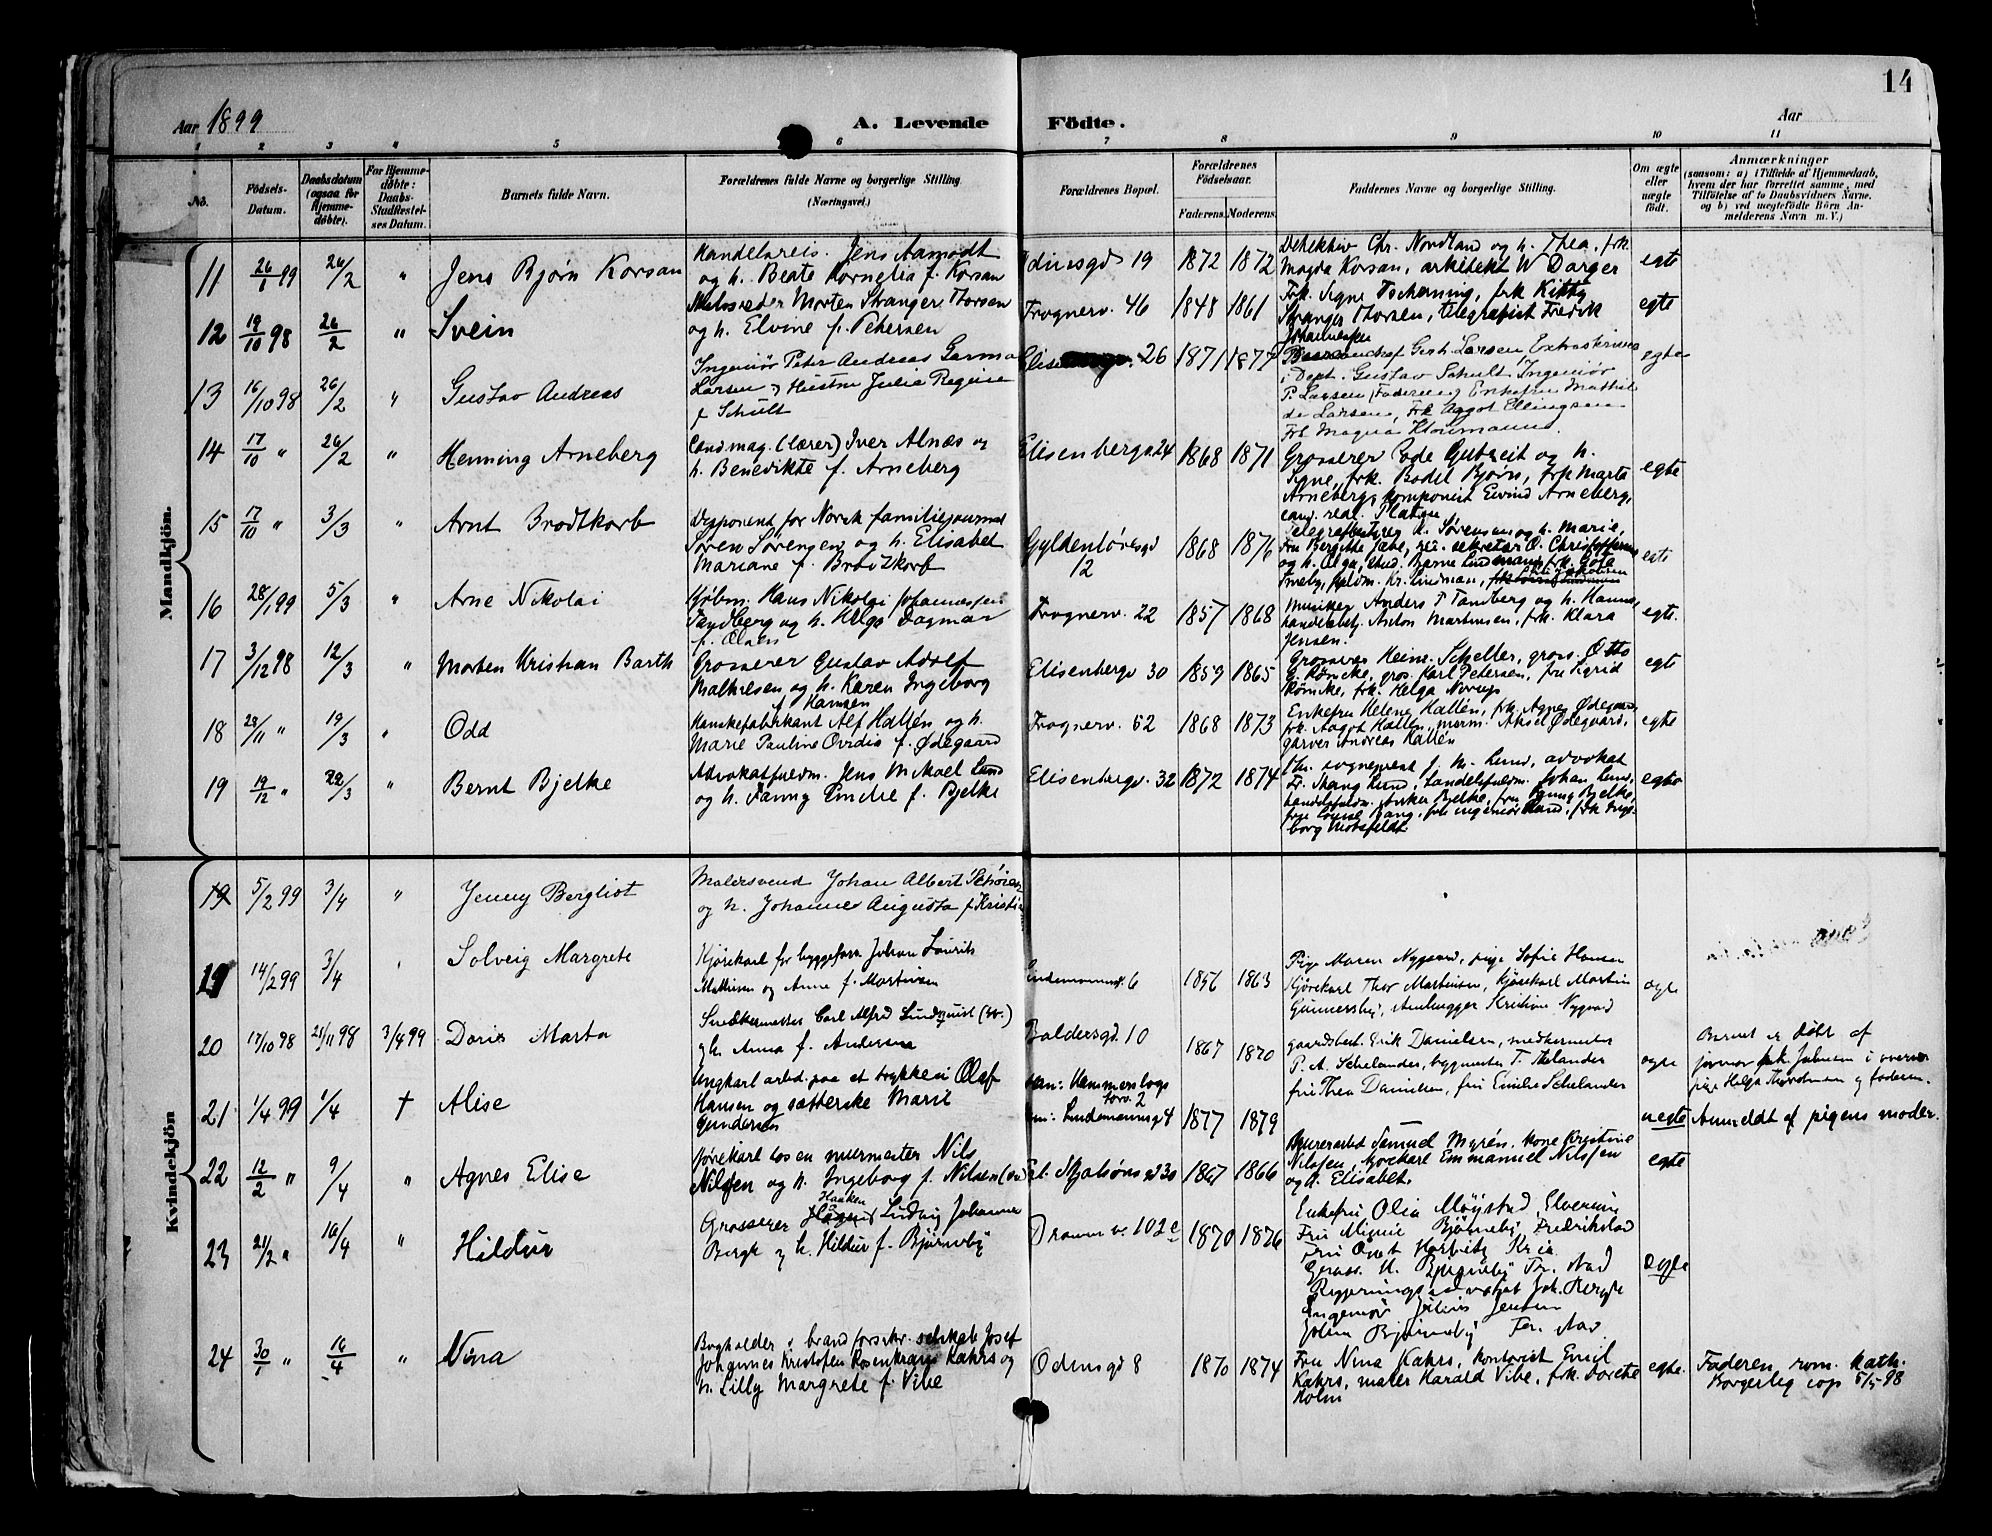 14
Aar 1899
A. Levende Födte.
Aar
1 2 3 4 5 6 7 8 9 10 11
No.
Födsels-Datum.
Daabsdatum (ogsaa for Hjemme-døbte).
For Hjemme-døbte: Daabs-Stadfæstel-ses Datum.
Barnets fulde Navn.
Forældrenes fulde Navne og borgerlige Stilling. (Næringsvei.)
Forældrenes Bopæl.
Forældrenes Fødselsaar.
Faderens. Moderens.
Faddernes Navne og borgerlige Stilling.
Om ægte eller uægte født.
Anmærkninger
(saasom: a) i Tilfælde af Hjemmedaab, hvem der har forrettet samme, med Tilføielse af to Daabsvidners Navne, og b) ved uægtefödte Börn An-melderens Navn m. V.)
Mandkjön.
11 26/1 99 26/2 " Jens Bjørn Korsan
Handelsreis. Jens Aamodt
og h. Beate Kornelia f. Korsan
Odinsgd 19 1872 1872
Detektiv Chr. Nordland og h. Thea, frk.
Magda Korsan, arkitekt W Darger
egte
12 19/10 98 26/2 " Svein
Skibsreder Morten Stranger Thorsen
og h. Elvine f. Petersen
Frognerv. 46 1848 1861
Frk. Signe Tscherning, frk Kitty
Stranger Thorsen, telegrafist Fredrik
Johannesen
egte
13 16/10 98 26/2 " Gustav Andreas
Ingeniør Peter Andreas Germo
Larsen og Hustru Julia Regine
f Schult
26 1871 1877
Gerh. Larsen, Extraskriver
i Dept. Gustav Schult Ingeniør
P. Larsen (Faderen) Enkefru Mathil
de Larsen, Frk Aagot Ellingsen
Frk Magna
egte
14 17/10 " 26/2 " Henning Arneberg
Cand mag. (lærer) Iver Alnæs og
h. Benedikte f. Arneberg
Elisenbergv 24 1868 1871
Grosserer Ode Gubreit og h.
Signe, frk. Bodil Bjørn, frk Marta
Arneberg, komponist Eivind Arneberg,
cand. real. Platou
egte
15 17/10 " 3/3 " Arnt Brodtkorb
Disponent for Norsk familiejournal
Søren Sørensen og h. Elisabet
Mariane f. Brodtkorb
Gyldenløvesgd
12
1868 1876
Sørensen og h. Marie,
Fru Bergitte sekretær O. Christoffersen
og h. Olga, stud. Bjarne Lindman, frk. Gota
Kr. Lindman,
egte
16 28/1 99 5/3 " Arne Nikolai
Kjøbm. Hans Nikolai Johannessen
Tandberg og h. Helga Dagmar
f. Olsen
Frognerv. 22 1857 1868
Musiker Anders T Tandberg og h. Hanna,
handelsbetj. Anton Martinsen, frk. Klara
Jensen.
egte.
17 3/12 98 12/3 " Morten Kristian Barth
Grosserer Gustav Adolf
Mathiesen og h. Karen Ingeborg
f Hansen
Elisenbergv 30 1859 1865
Grosserer Heinr. Scheller, gross. Otto
G. Rømcke, gros. Karl Petersen, fru Sigrid
Rømcke, frk. Helga Nerup
egte
18 29/11 " 19/3 " Odd
Hanskefabrikant Alf Hallén og h.
Marie Pauline Ovidia f. Ødegaard
Frognerv. 62 1868 1873
Enkefru Helene Hallén, frk. Agnes Ødegaard,
frk. Aagot Hallén, Aksel Ødegaard,
garver Andreas Hallén
egte
19 19/12 " 22/3 " Bernt Bjelke
Advokatfuldm. Jens Mikael Lund
og h. Fanny Emelie f. Bjelke
Elisenbergv. 32 1872 1874
sogneprest J. M. Lund, advokat
Fr. Stang Lund, handelsfuldm. Johan Lund,
handelsfuldm. Anker Bjelke, fru Bjelke,
frk Bang, frk Inge-
borg Motzfeldt
egte
Kvindekjön
19 5/2 99 3/4 " Jenny Bergliot
Malersvend Johan Albert
og h. Johanne Augusta f
19 14/2 99 3/4 Solveig Margrete
Kjørekarl for byggeforr. Johan Laurits
Mathisen og Anna f. Martinsen
Lindemannsg. 6 1856 1863
Pige Maren Nygaard, pige Sofie Hansen
Kjørekarl Thor Martinsen, kjørekarl Martin
Gunnersby, Kristian Nygaard
egte
20 17/10 98 21/11 98 3/4 99 Doris Marta
Snedkermester Carl Alfred Lindquist (sv.)
og h. Anna f. Andersen
Baldersgd. 10 1867 1870
gaardsbest. Erik Danielsen, snedkermester
P. A. Schelander, bygmester T. Thelander
fru Thea Danielsen, fru Emilie Schelander
egte
Barnet er døbt af
jormor frk. Julnesen i overvær
pige Helga og faderen.
21 1/4 99 1/4 † Alise
Ungkarl arbd. paa et trykkeri Olaf
Hansen og sætterske Marie
Gundersen
han: Hammersborgs
torv. 2
hun: Lindemannsg 4
1877 1879
uegte
Anmeldt af pigens moder.
22 12/2 " 9/4 " Agnes Elise
Kjørekarl hos en murmester Nils
Nilsen og h. Ingeborg f. Nilsen (sv)
1867 1866
Samuel Myrén, kone Kristine
Nilsfen, kjørekarl Emmanuel Nilsfen
og h. Elisabet.
egte
23 21/2 " 16/4 " Hildur
Grosserer Haaken Ludvig Johannes
Bergh og h. Hildur f. Bjørneby
Dramm v. 102e 1870 1876
Enkefru Olia Møystad, Elverum
Fru Mignie Bjørneby Fredrikstad
Fru Horneby Kria
Gross. H. Bjørneby Fr. stad
Regjeringsadvokat Joh. Bergh
Ingeniør Julius Jensen
Johan Bjørneby Fr. stad
egte
24 30/1 " 16/4 " Nina
Bogholder i brandforsikr. selskab Josef
Johannes Kristofen Rosenkrans Kahrs og
h. Lilly Margrete f. Vibe
Odinsgd 8 1870 1874
Fru Nina Kahrs, kontorist Emil
Kahrs, maler Harald Vibe, frk. Dorethe
Holm
egte.
Faderen, rom. kath.
Borgerlig cop 5/5 98